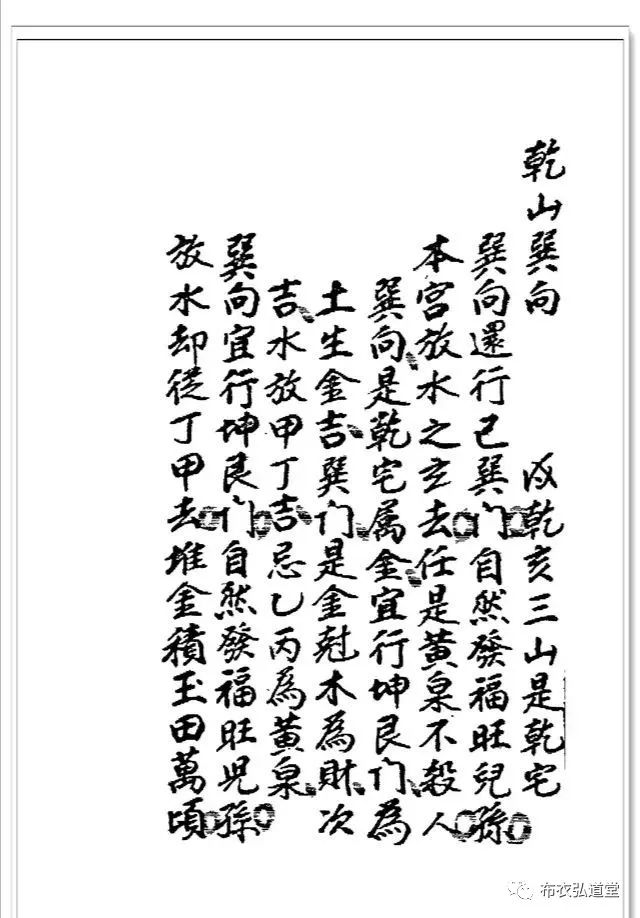 乾山巽向　戌乾亥三山是乾宅
巽向還行己巽门自然發福旺兒孫
本宫放水之亥去任是黄泉不殺人
巽向是乾宅属金宜行坤艮门為
土生金吉巽门是金尅木為財次
吉水放甲丁吉忌乙丙為黄泉
巽向宜行坤艮门自然發福旺児孫
放水却從丁甲去堆金積玉田萬頃
布衣弘道堂